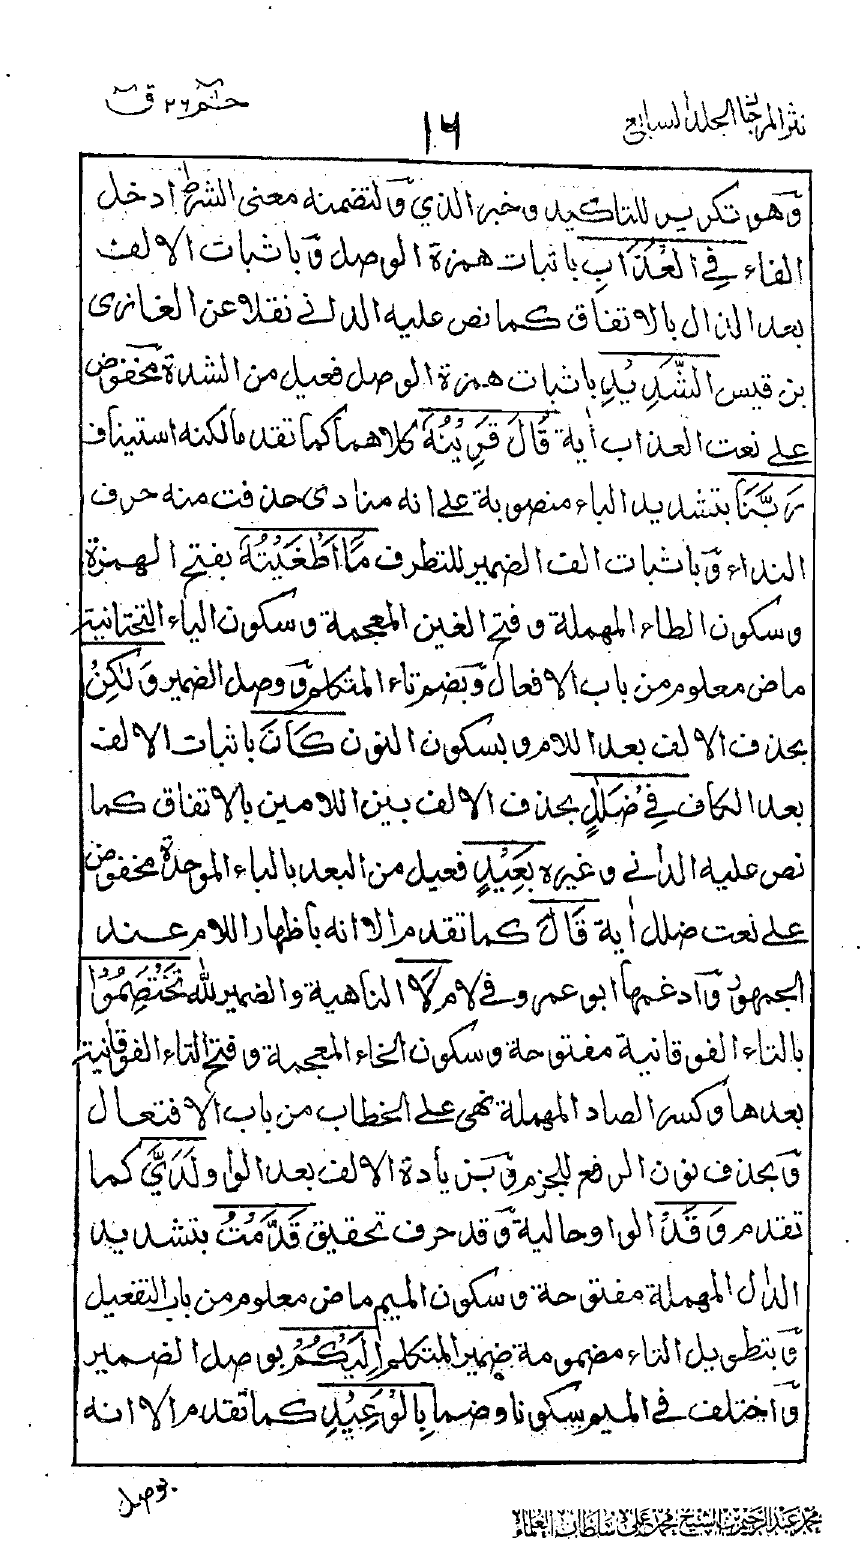 نثر المرجان الجلد السابع
١٦
حٰم ٢٦ ق
وهو تكرير للتاكيد وخبر الذي ولتضمنه معنى الشرط ادخل
الفاء فِي الْعَذَابِ باثبات همزة الوصل وباثبات الالف
بعد الذال بالاتفاق كما نص عليه الداني نقلا عن الغازى
بن قيس الشَّدِيْدِ باثبات همزة الوصل فعيل من الشدة مخفوض
على نعت العذاب اٰية قَالَ قَرِيْنُهٗ كلاهما كما تقدم لكنه استيناف
رَبَّنَا بتشديد الباء منصوبة على انه منادى حذفت منه حرف
النداء وباثبات الف الضمير للتطرف مَا اَطْغَيْتُهٗ بفتح الهمزة
وسكون الطاء المهملة وفتح الغين المعجمة وسكون الياء التحتانية
ماض معلوم من باب الافعال وبضم تاء المتكلم ووصل الضمير وَلٰكِنْ
بحذف الالف بعد اللام وبسكون النون كَانَ باثبات الالف
بعد الكاف فِيْ ضَلٰلٍ بحذف الالف بين اللامين بالاتفاق كما
نص عليه الداني وغيره بَعِيْدٍ فعيل من البعد بالباء الموحدة مخفوض
على نعت ضلل اٰية قَالَ كما تقدم الا انه باظهار اللام عند
الجمهور وادغمها ابو عمرو في لام لَا الناهية والضمير لله تَخْتَصِمُوْا
بالتاء الفوقانية مفتوحة وسكون الخاء المعجمة وفتح التاء الفوقانية
بعدها وكسر الصاد المهملة نهى على الخطاب من باب الافتعال
وبحذف نون الرفع للجزم وبزيادة الالف بعد الواو لَدَيَّ كما
تقدم وَقَدْ الواو حالية وقد حرف تحقيق قَدَّمْتُ بتشديد
الدال المهملة مفتوحة وسكون الميم ماض معلوم من باب التفعيل
وبتطويل التاء مضمومة ضمير المتكلم اِلَيْكُمْ بوصل الضمير
واختلف في الميم سكونا وضما بِالْوَعِيْدِ كما تقدم الا انه
بوصل
محمد عبد الرحيم بن الشيخ محمد علي سلطان العلماء